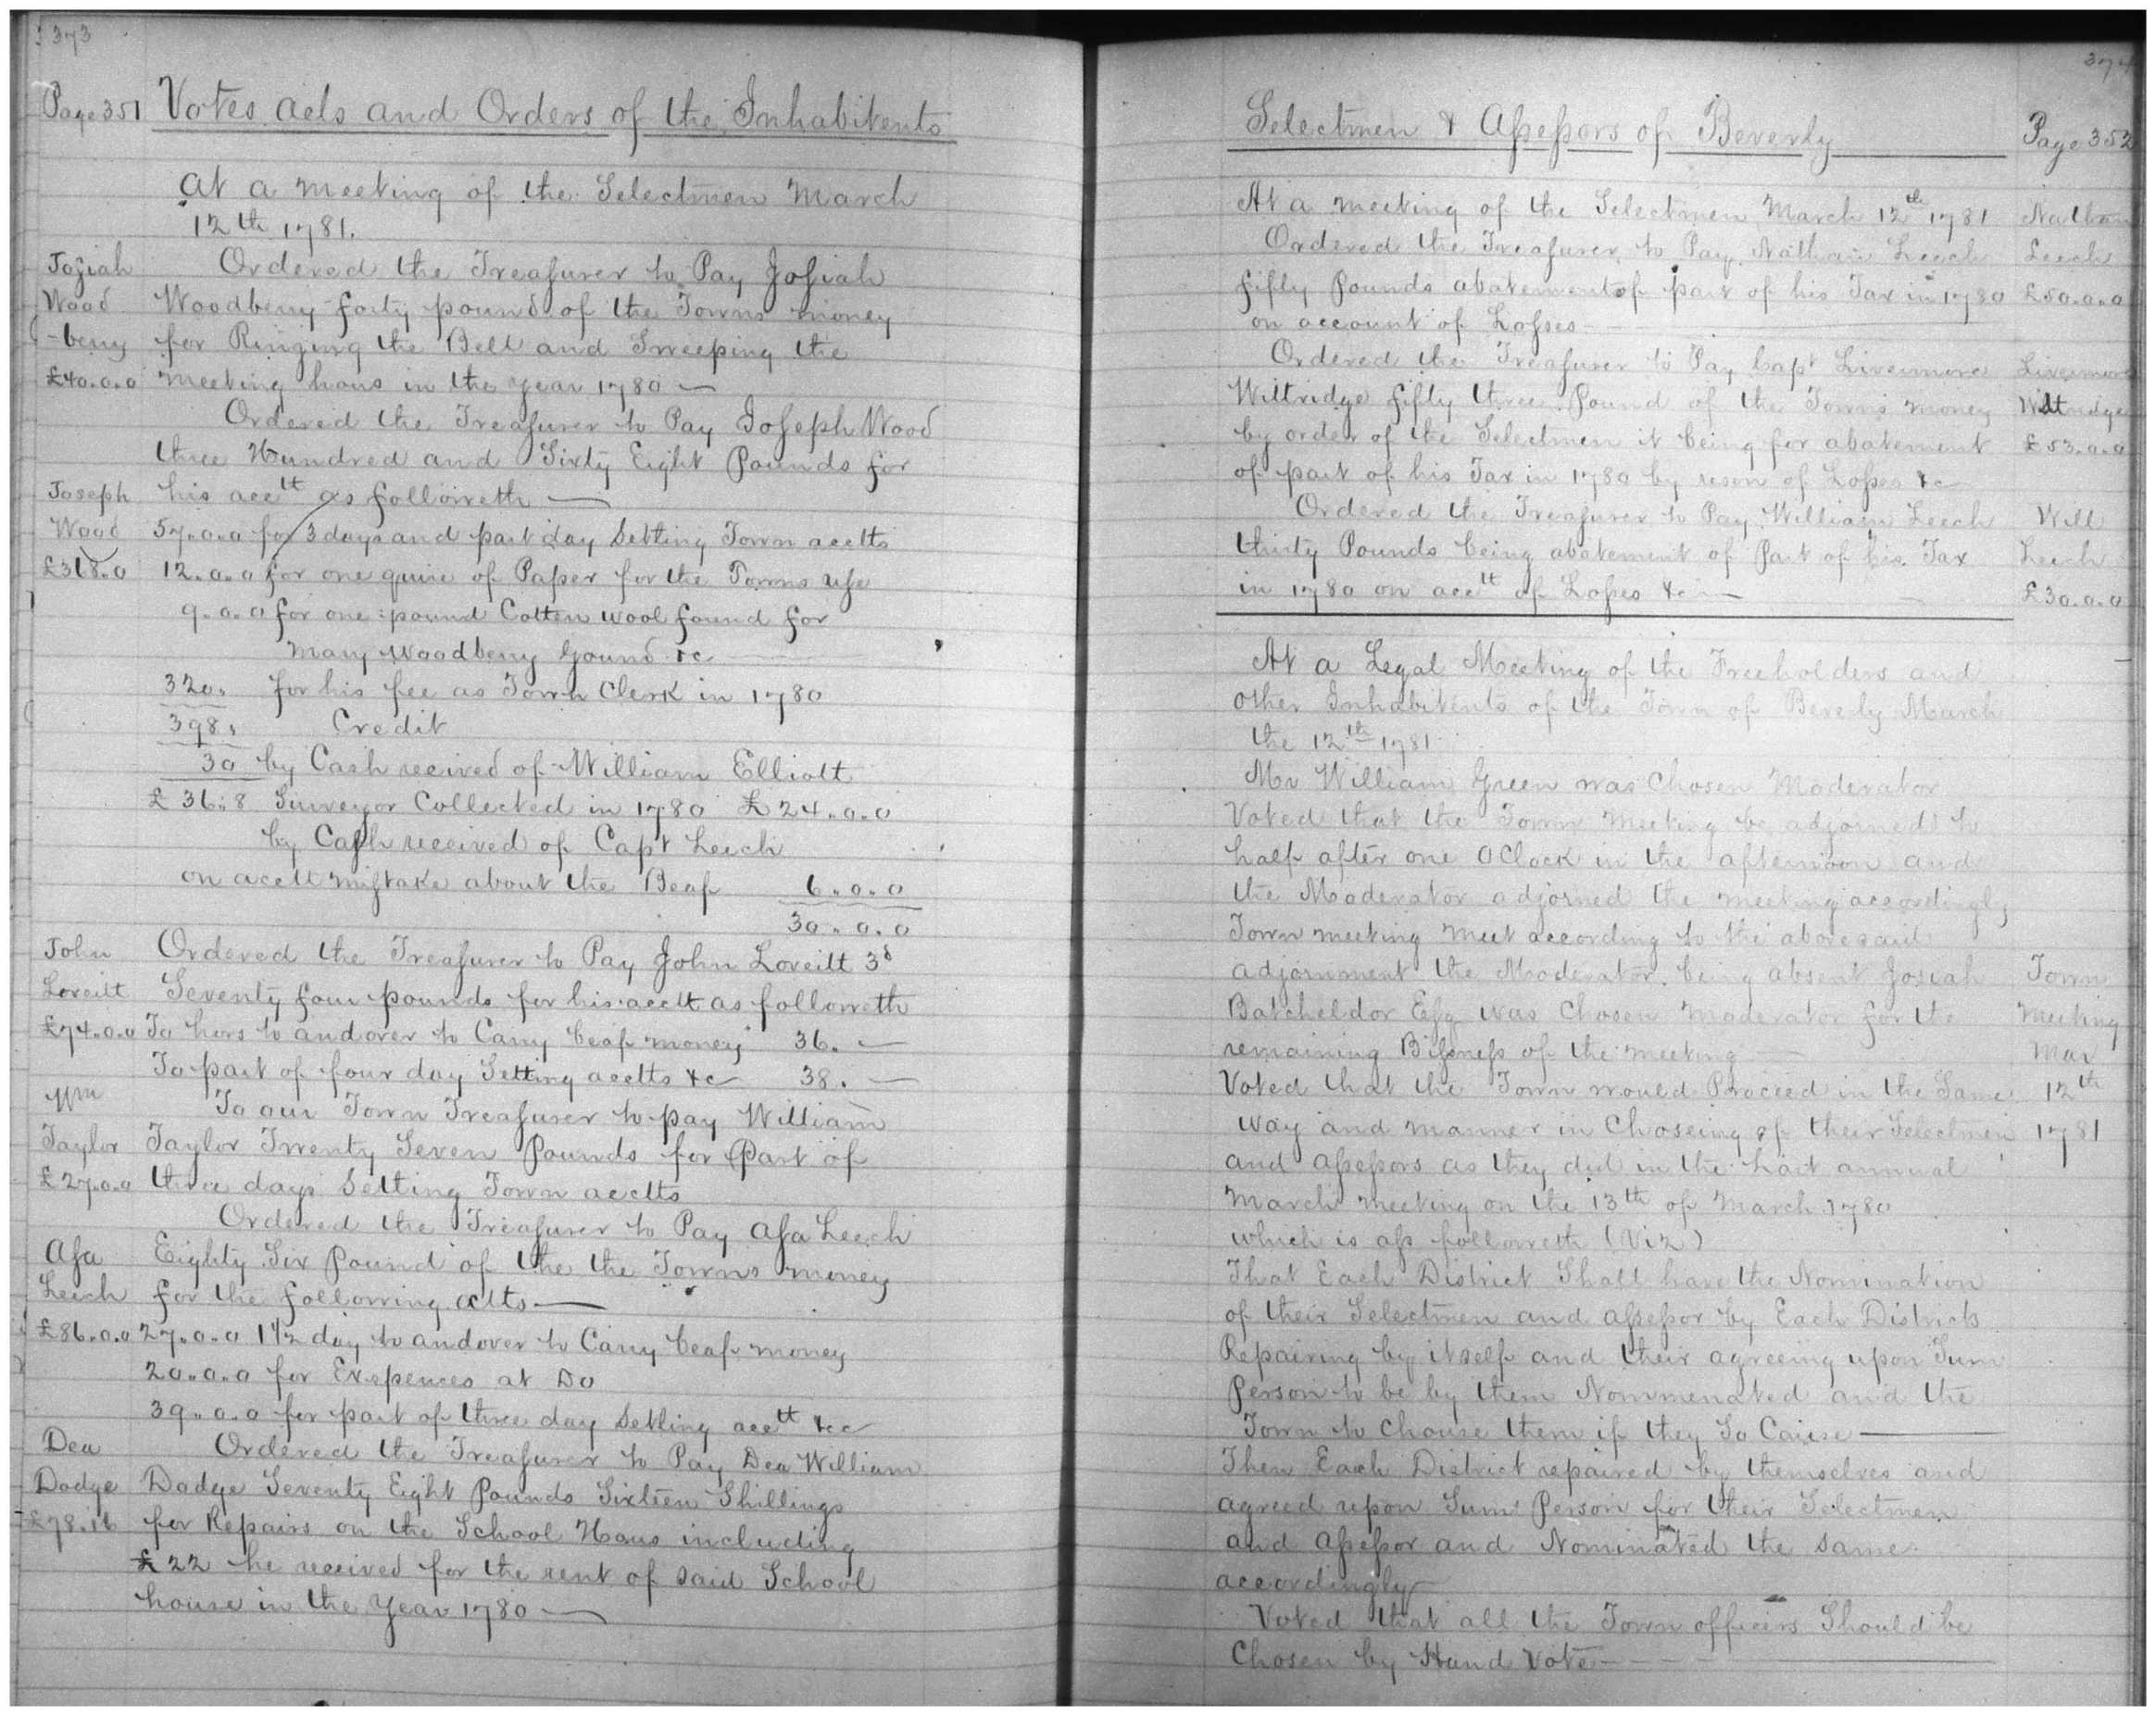 373
Page 351 Votes acts and Orders of the Inhabitents
at a meeting of the Selectmen March
12th 1781.
Josiah Ordered the Treasurer to Pay Josiah
Wood Woodberry forty pound of the Towns money
-berry for Ringing the Bell and Sweeping the
£40.0.0 meeting hous in the year 1780
Ordered the Treasurer to Pay Joseph Wood
three Hundred and Sixty Eight Pounds for
Joseph his acctt as followeth
Wood 57.0.0 for 3 days and part day Setting Town acctts
£368.0 12.0.0 for one quire of Paper for the Towns use
9.0.0 for one pound Cotten wool found for
Mary Woodberry Gound &c
320. for his fee as Town Clerk in 1780
398. Credit
30 by Cash received of William Elliott
£368 Surveyor Collected in 1780 £24.0.0
by Cash received of Capt Leech
on acctt mistake about the Beaf 6.0.0
30.0.0
John Ordered the Treasurer to Pay John Loveitt 3d
Loveitt Seventy four pounds for his acctt as followeth
£74.0.0 To hors to andover to Carry beaf money 36. —
To part of four day Setting acctts &c 38. —
Wm To our Town Treasurer to pay William
Taylor Taylor Twenty Seven Pounds for Part of
£27.0.0 three days Setting Town acctts
Ordered the Treasurer to Pay Asa Leech
Asa Eighty Six Pound of the the Towns money
Leech for the following actts
£86.0.0 27.0.0 1 1/2 day to andover to Carry beaf money
20.0.0 for Expences at Do
39.0.0 for part of three day Setting acctt &c
Dea Ordered the Treasurer to Pay Dea William
Dodge Dodge Seventy Eight Pounds Sixteen Shillings
£78.16 for Repairs on the School Hous including
£22 he received for the rent of said School
house in the Year 1780
374
Selectmen & Assessors of Beverly Page 352
At a meeting of the Selectmen March 12th 1781 Nathan
Ordered the Treasurer to Pay Nathan Leech Leech
fifty Pounds abatement of part of his Tax in 1780 £50.0.0
on account of Losses
Ordered the Treasurer to Pay Capt Livermore Livermore
Wittridge fifty three Pound of the Towns money Wittridge
by order of the Selectmen it being for abatement £53.0.0
of part of his Tax in 1780 by reson of Losses &c
Ordered the Treasurer to Pay William Leech Will
thirty Pounds being abatement of Part of his Tax Leech
in 1780 on acctt of Losses &c £30.0.0
At a Legal Meeting of the Freeholders and
other Inhabitents of the Town of Beverly March
the 12th 1781
Mr William Green was Chosen Moderator
Voted that the Town Meeting be adjorned to
half after one OClock in the afternoon and
the Moderator adjorned the meeting accordingly
Town meeting meet according to the abovesaid
adjornment the Moderator being absent Josiah Town
Batcheldor Esq was Chosen Moderator for the Meeting
remaining Bissness of the meeting Mar
Voted that the Town would Proceed in the Same 12th
way and manner in Choseing of their Selectmen 1781
and assessors as they did in the last annual
March meeting on the 13th of March 1780
which is ass followeth (Viz)
That Each District Shall have the Nomination
of their Selectmen and assessor by Each Districts
Repairing by itself and their agreeing upon Sum
Person to be by them Nommenated and the
Town to Chouse them if they So Cause
Then Each District repaired by themselves and
agreed upon Sum Person for their Selectmen
and assessor and Nominated the same
accordingly
Voted that all the Town officers Should be
Chosen by Hand Vote